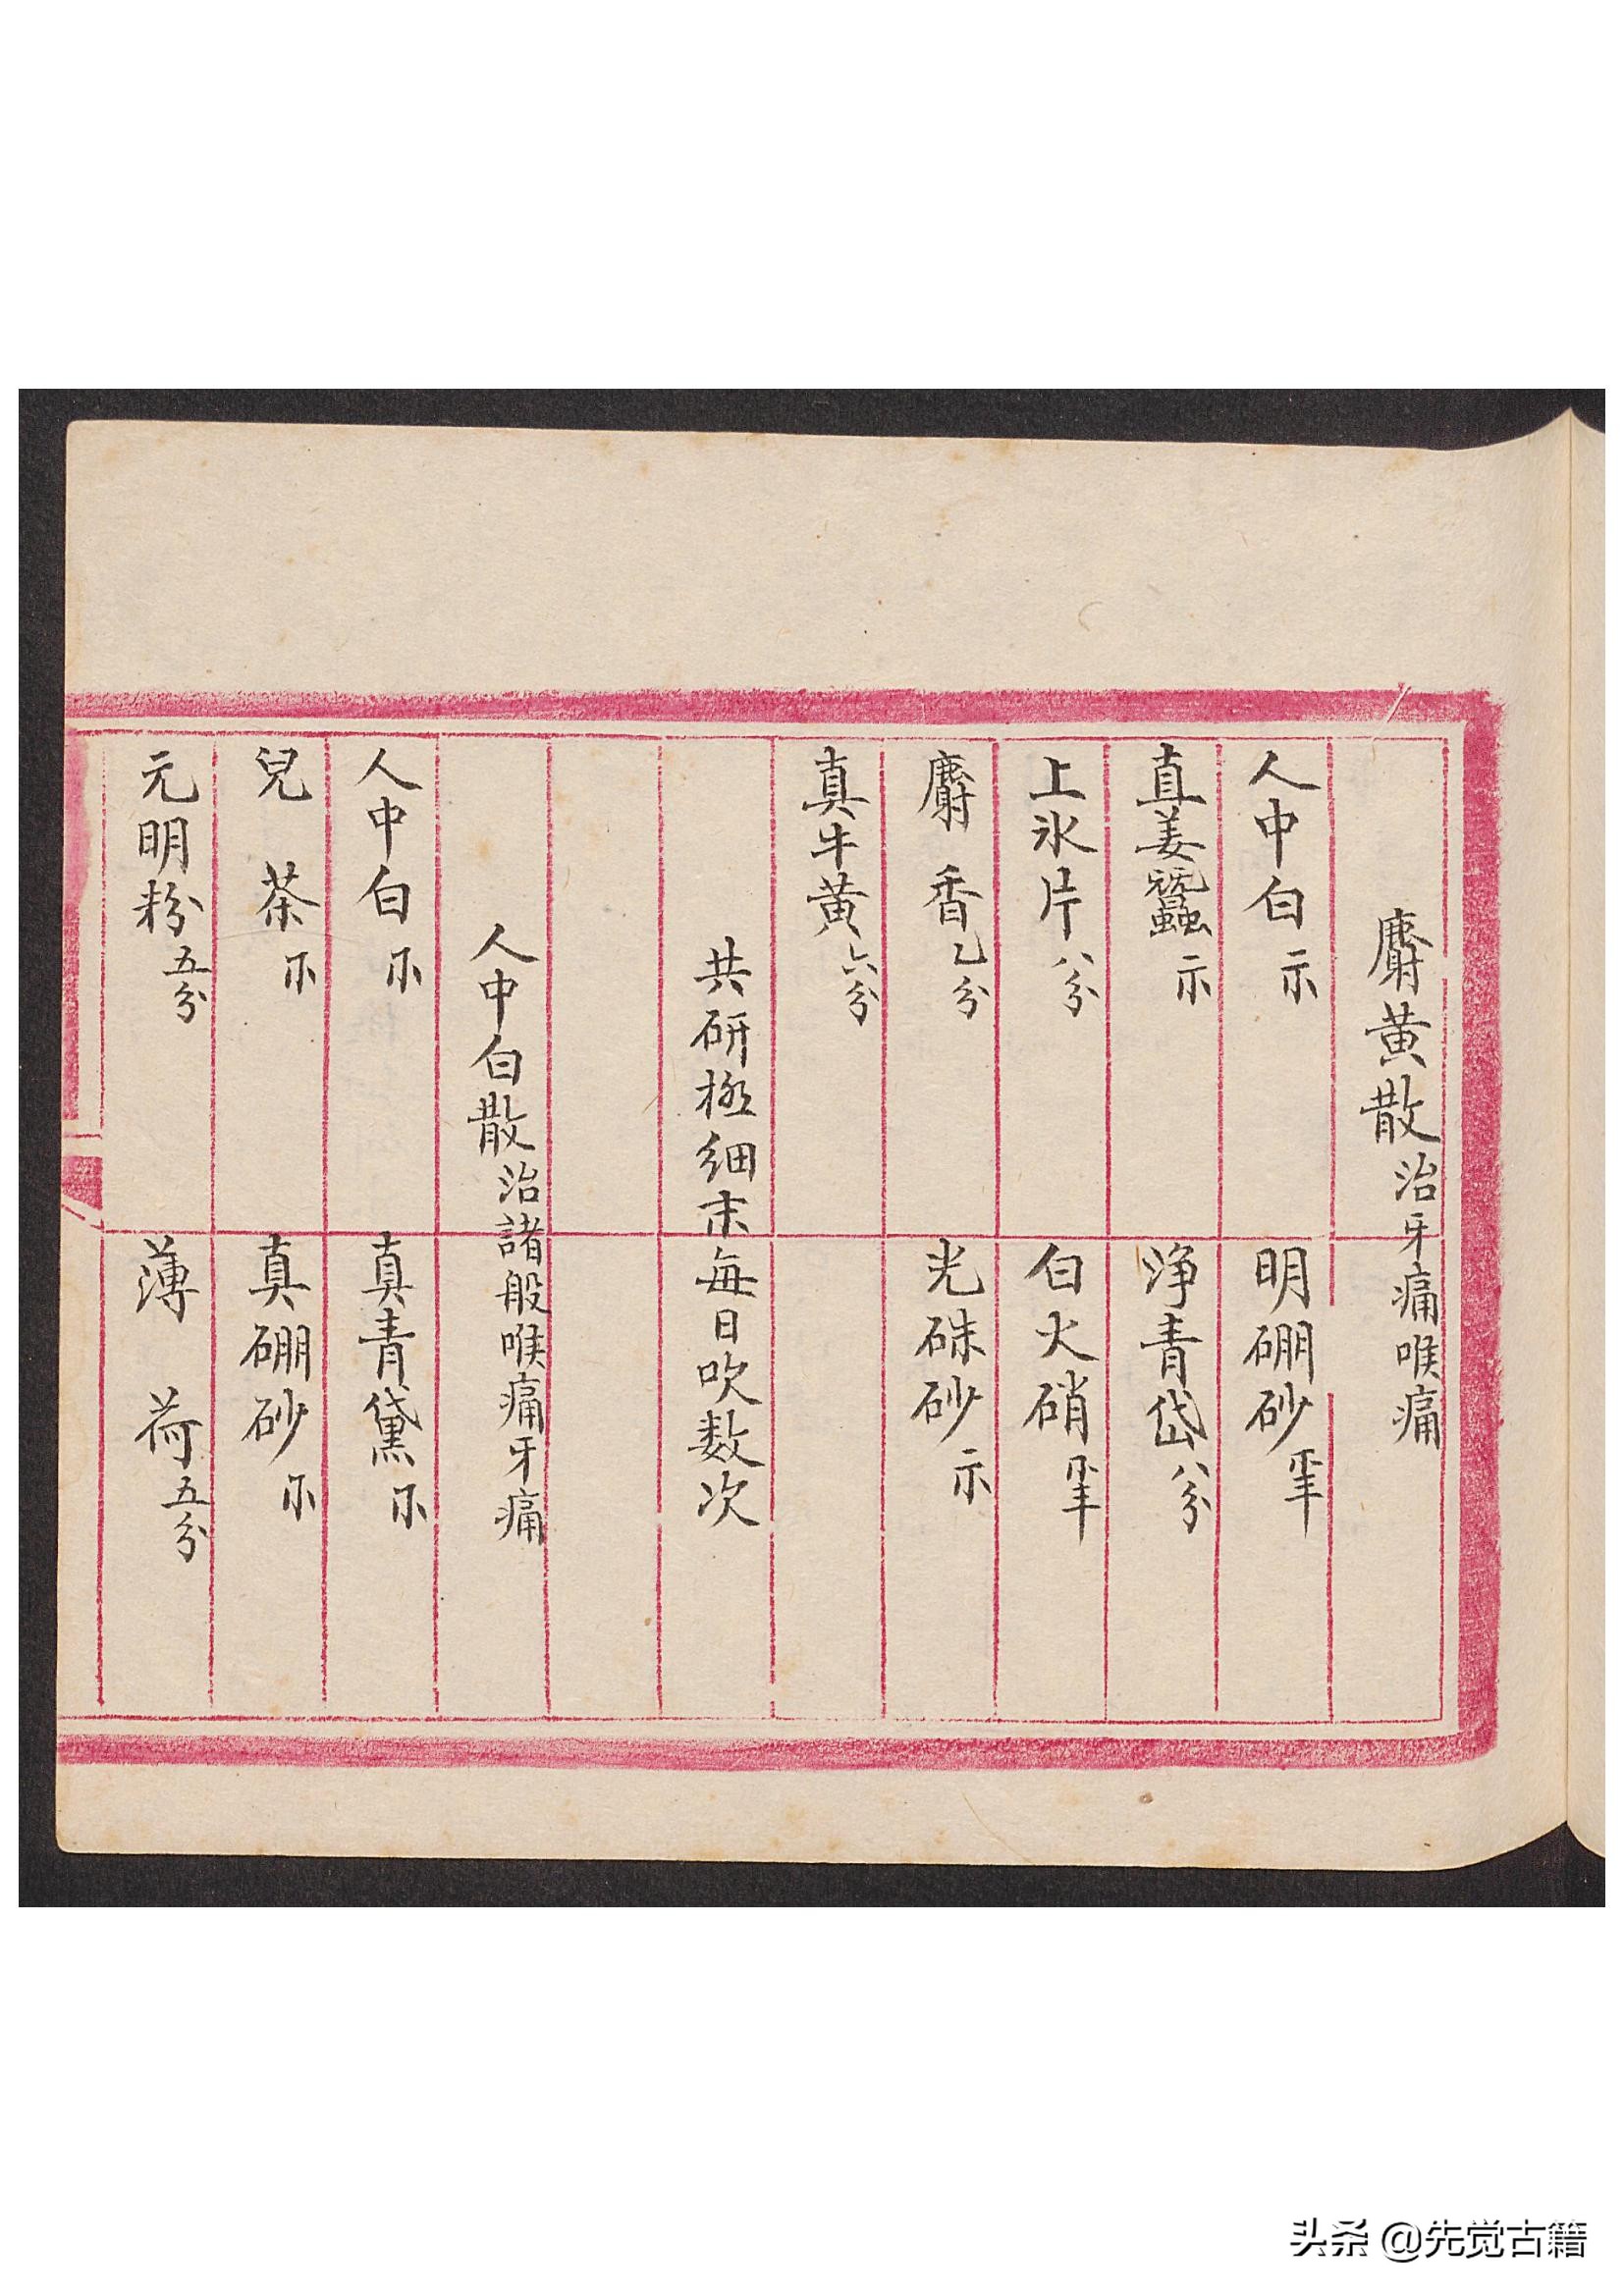 麝黄散治牙痛喉痛
人中白 明硼砂
真姜蠶 净青岱八分
上氷片八分 白火硝
麝香乙分 光硃砂
真牛黄六分
共研極细末每日吹数次
人中白散治諸般喉痛牙痛
人中白 真青黛
兒茶 真硼砂
元明粉五分 薄荷五分
头条 @先觉古籍